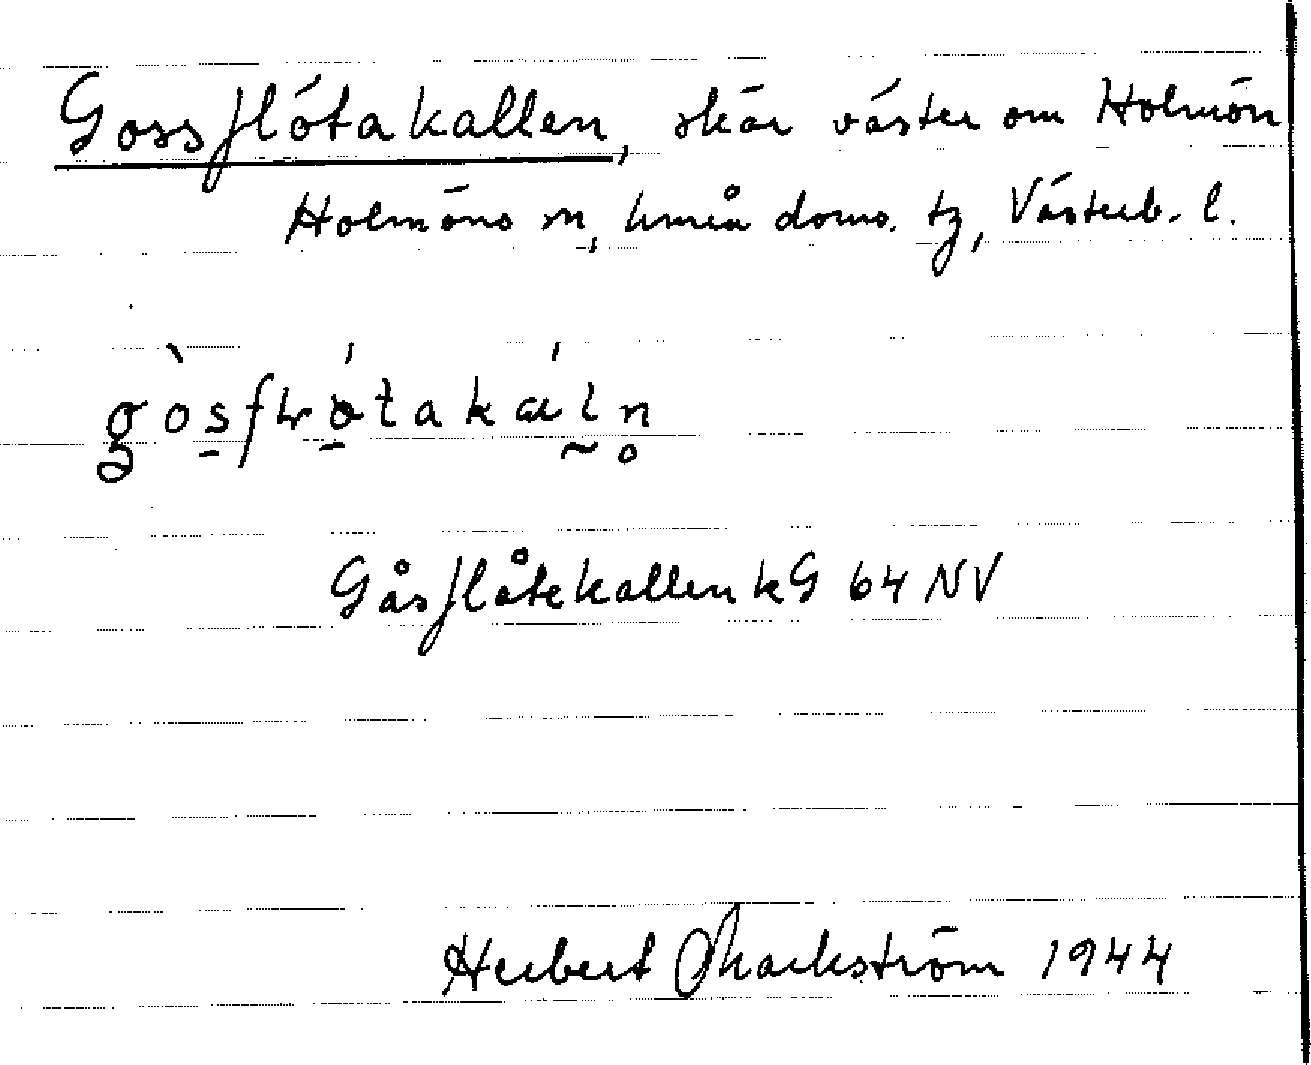 Gossflötakallen, skär väster om Holmön
Holmöns sn, Umeå doms. tg, Västerb. l.
gòsfłótakáln̥
Gåsflötekallen kG 64 NV
Herbert Markström 1944